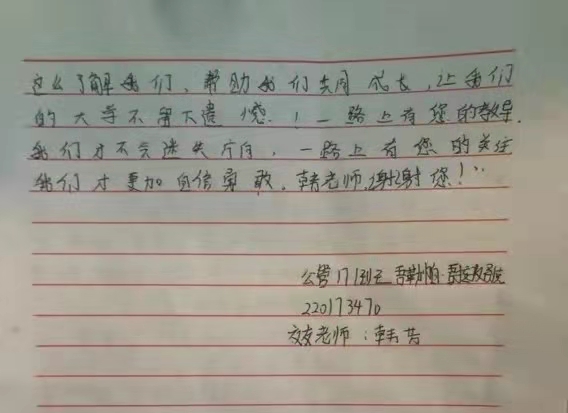 这么了解我们、帮助我们共同成长,让我们
的大学不留下遗憾!一路上有您的教导.
我们才不会迷失方向,一路上有您的关注
我们才更加自信勇敢。韩老师,谢谢您!”
公管171班
220173470
老师:韩芸